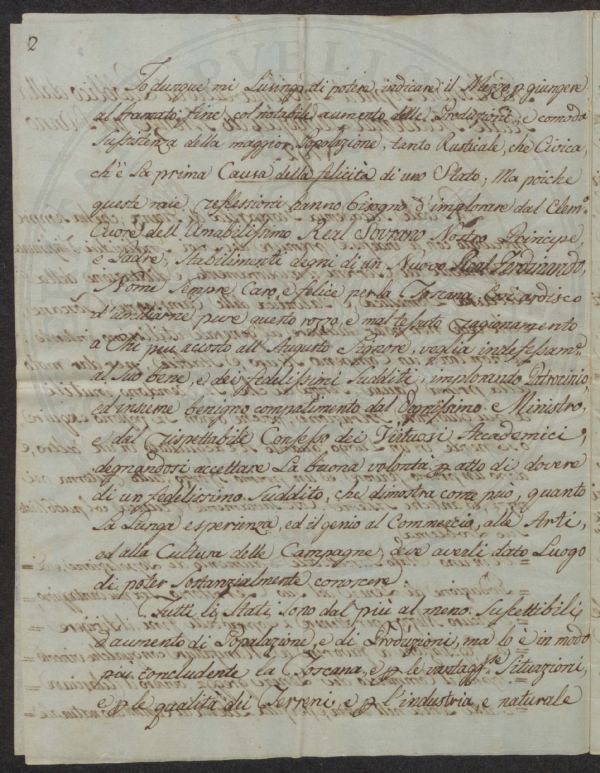 2
Io dunque mi Lusingo di potere indicare il Mezzo p giungere
al bramato fine col notabile aumento delle Produzioni, e comoda
Sussistenza della maggior Popolazione, tanto Rusticale, che Civica,
ch'è La prima Causa della felicità di uno Stato; Ma poiche
queste mie reflessioni hanno bisogno d'implorare dal Clem.o
Cuore dell'Amabilissimo Real Sovrano Nostro Principe,
e Padre, stabilimente degni di un Nuovo Real Ferdinando,
Nome sempre Caro, e felice per la Toscana, Così ardisco
d'umiliarne pure questo rozzo, e mal tessuto Ragionamento
a Chi più accosto all'Augusto Signore, veglia indefessam.e
al Suo bene, e dei fedelissimi Sudditi, implorando Patrocinio,
ed insieme benigno compatimento dal Degnissimo e Ministro,
e dal rispettabile Consesso dei Virtuosi Accademici,
degnandosi accettare La buona volontà p atto di dovere
di un fedelissimo Suddito, che dimostra come può, quanto
La Lunga esperienza, ed il genio al Commercio, alle Arti,
ed alla Cultura delle Campagne, deve averli dato Luogo
di poter Sostanzialmente conoscere.
Tutti li Stati, sono dal più al meno Suscettibili
d'aumento di Popolazione, e di Produzioni, ma lo è in modo
più concludente la Toscana, e p le vantagg.se Situazioni,
e p le qualità dei Terreni, e p l'industria, e naturale